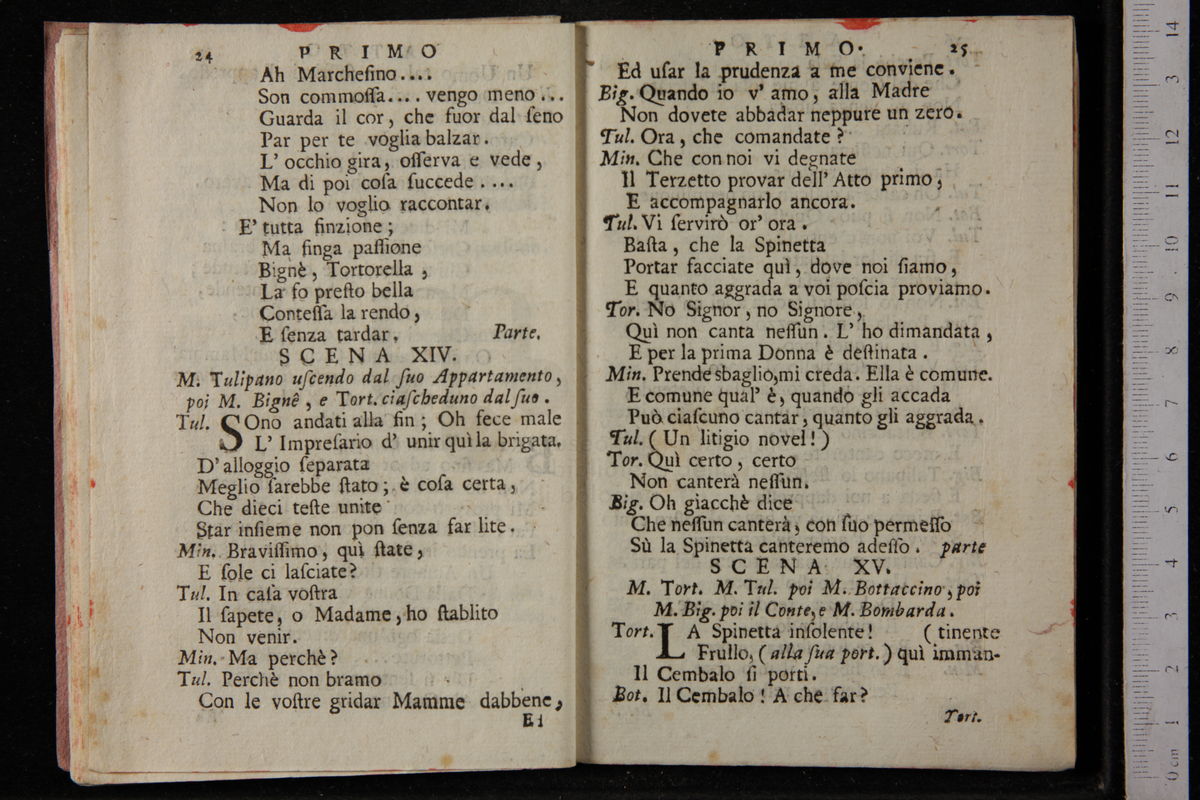 24 PRIMO
Ah Marcheſino....
Son commoſſa.... vengo meno...
Guarda il cor, che fuor dal ſeno
Par per te voglia balzar.
L' occhio gira, oſſerva e vede,
Ma di poi coſa ſuccede....
Non lo voglio raccontar.
E' tutta finzione;
Ma finga paſſione
Bignè, Tortorella,
La fo preſto bella
Conteſſa la rendo,
E ſenza tardar. Parte.
SCENA XIV.
M. Tulipano uſcendo dal ſuo Appartamento,
poi M. Bignê, e Tort. ciaſcheduno dal ſuo.
Tul. SOno andati alla fin; Oh fece male
L' Impreſario d' unir quì la brigata.
D' alloggio ſeparata
Meglio ſarebbe ſtato; è coſa certa,
Che dieci teſte unite
Star inſieme non pon ſenza far lite.
Min. Braviſſimo, quì ſtate,
E ſole ci laſciate?
Tul. In caſa voſtra
Il ſapete, o Madame, ho ſtablito
Non venir.
Min. Ma perchè?
Tul. Perchè non bramo
Con le voſtre gridar Mamme dabbene,
Ei
PRIMO. 25
Ed uſar la prudenza a me conviene.
Big. Quando io v' amo, alla Madre
Non dovete abbadar neppure un zero.
Tul. Ora, che comandate?
Min. Che con noi vi degnate
Il Terzetto provar dell' Atto primo,
E accompagnarlo ancora.
Tul. Vi ſervirò or' ora.
Baſta, che la Spinetta
Portar facciate quì, dove noi ſiamo,
E quanto aggrada a voi poſcia proviamo.
Tor. No Signor, no Signore,
Quì non canta neſſun. L' ho dimandata,
E per la prima Donna è deſtinata.
Min. Prende sbaglio, mi creda. Ella è comune.
E comune qual' è, quando gli accada
Può ciaſcuno cantar, quanto gli aggrada.
Tul. (Un litigio novel!)
Tor. Quì certo, certo
Non canterà neſſun.
Big. Oh giacchè dice
Che neſſun canterà, con ſuo permeſſo
Sù la Spinetta canteremo adeſſo. parte
SCENA XV.
M. Tort. M. Tul. poi M. Bottaccino, poi
M. Big. poi il Conte, e M. Bombarda.
Tort. LA Spinetta inſolente! (tinente
Frullo, (alla ſua port.) quì imman-
Il Cembalo ſi porti.
Bot. Il Cembalo! A che far?
Tort.
14
13
12
11
10
9
8
7
6
5
4
3
2
1
0 cm